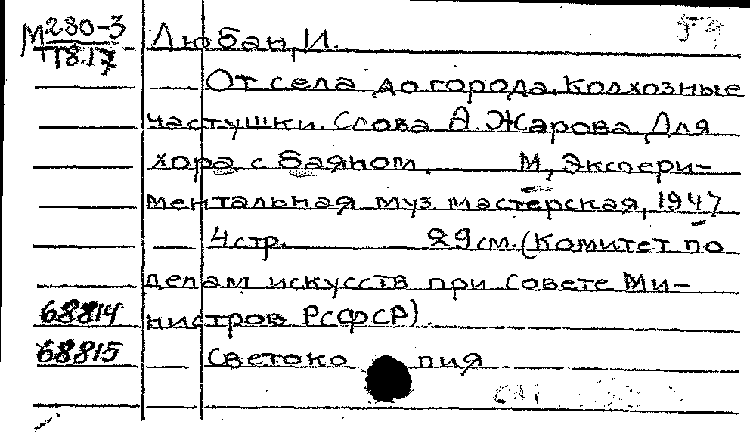 М 280-3 Любан, И.
118.17
От села до города. Колхозные
частушки. Слова А. Жарова. Для
хора с баяном. М, Экспери-
ментальная муз. мастерская, 1947
4стр. 29см. (Комитет по
делам искусств при Совете Ми-
68814 нистров РСФСР)
68815 Светоко пия